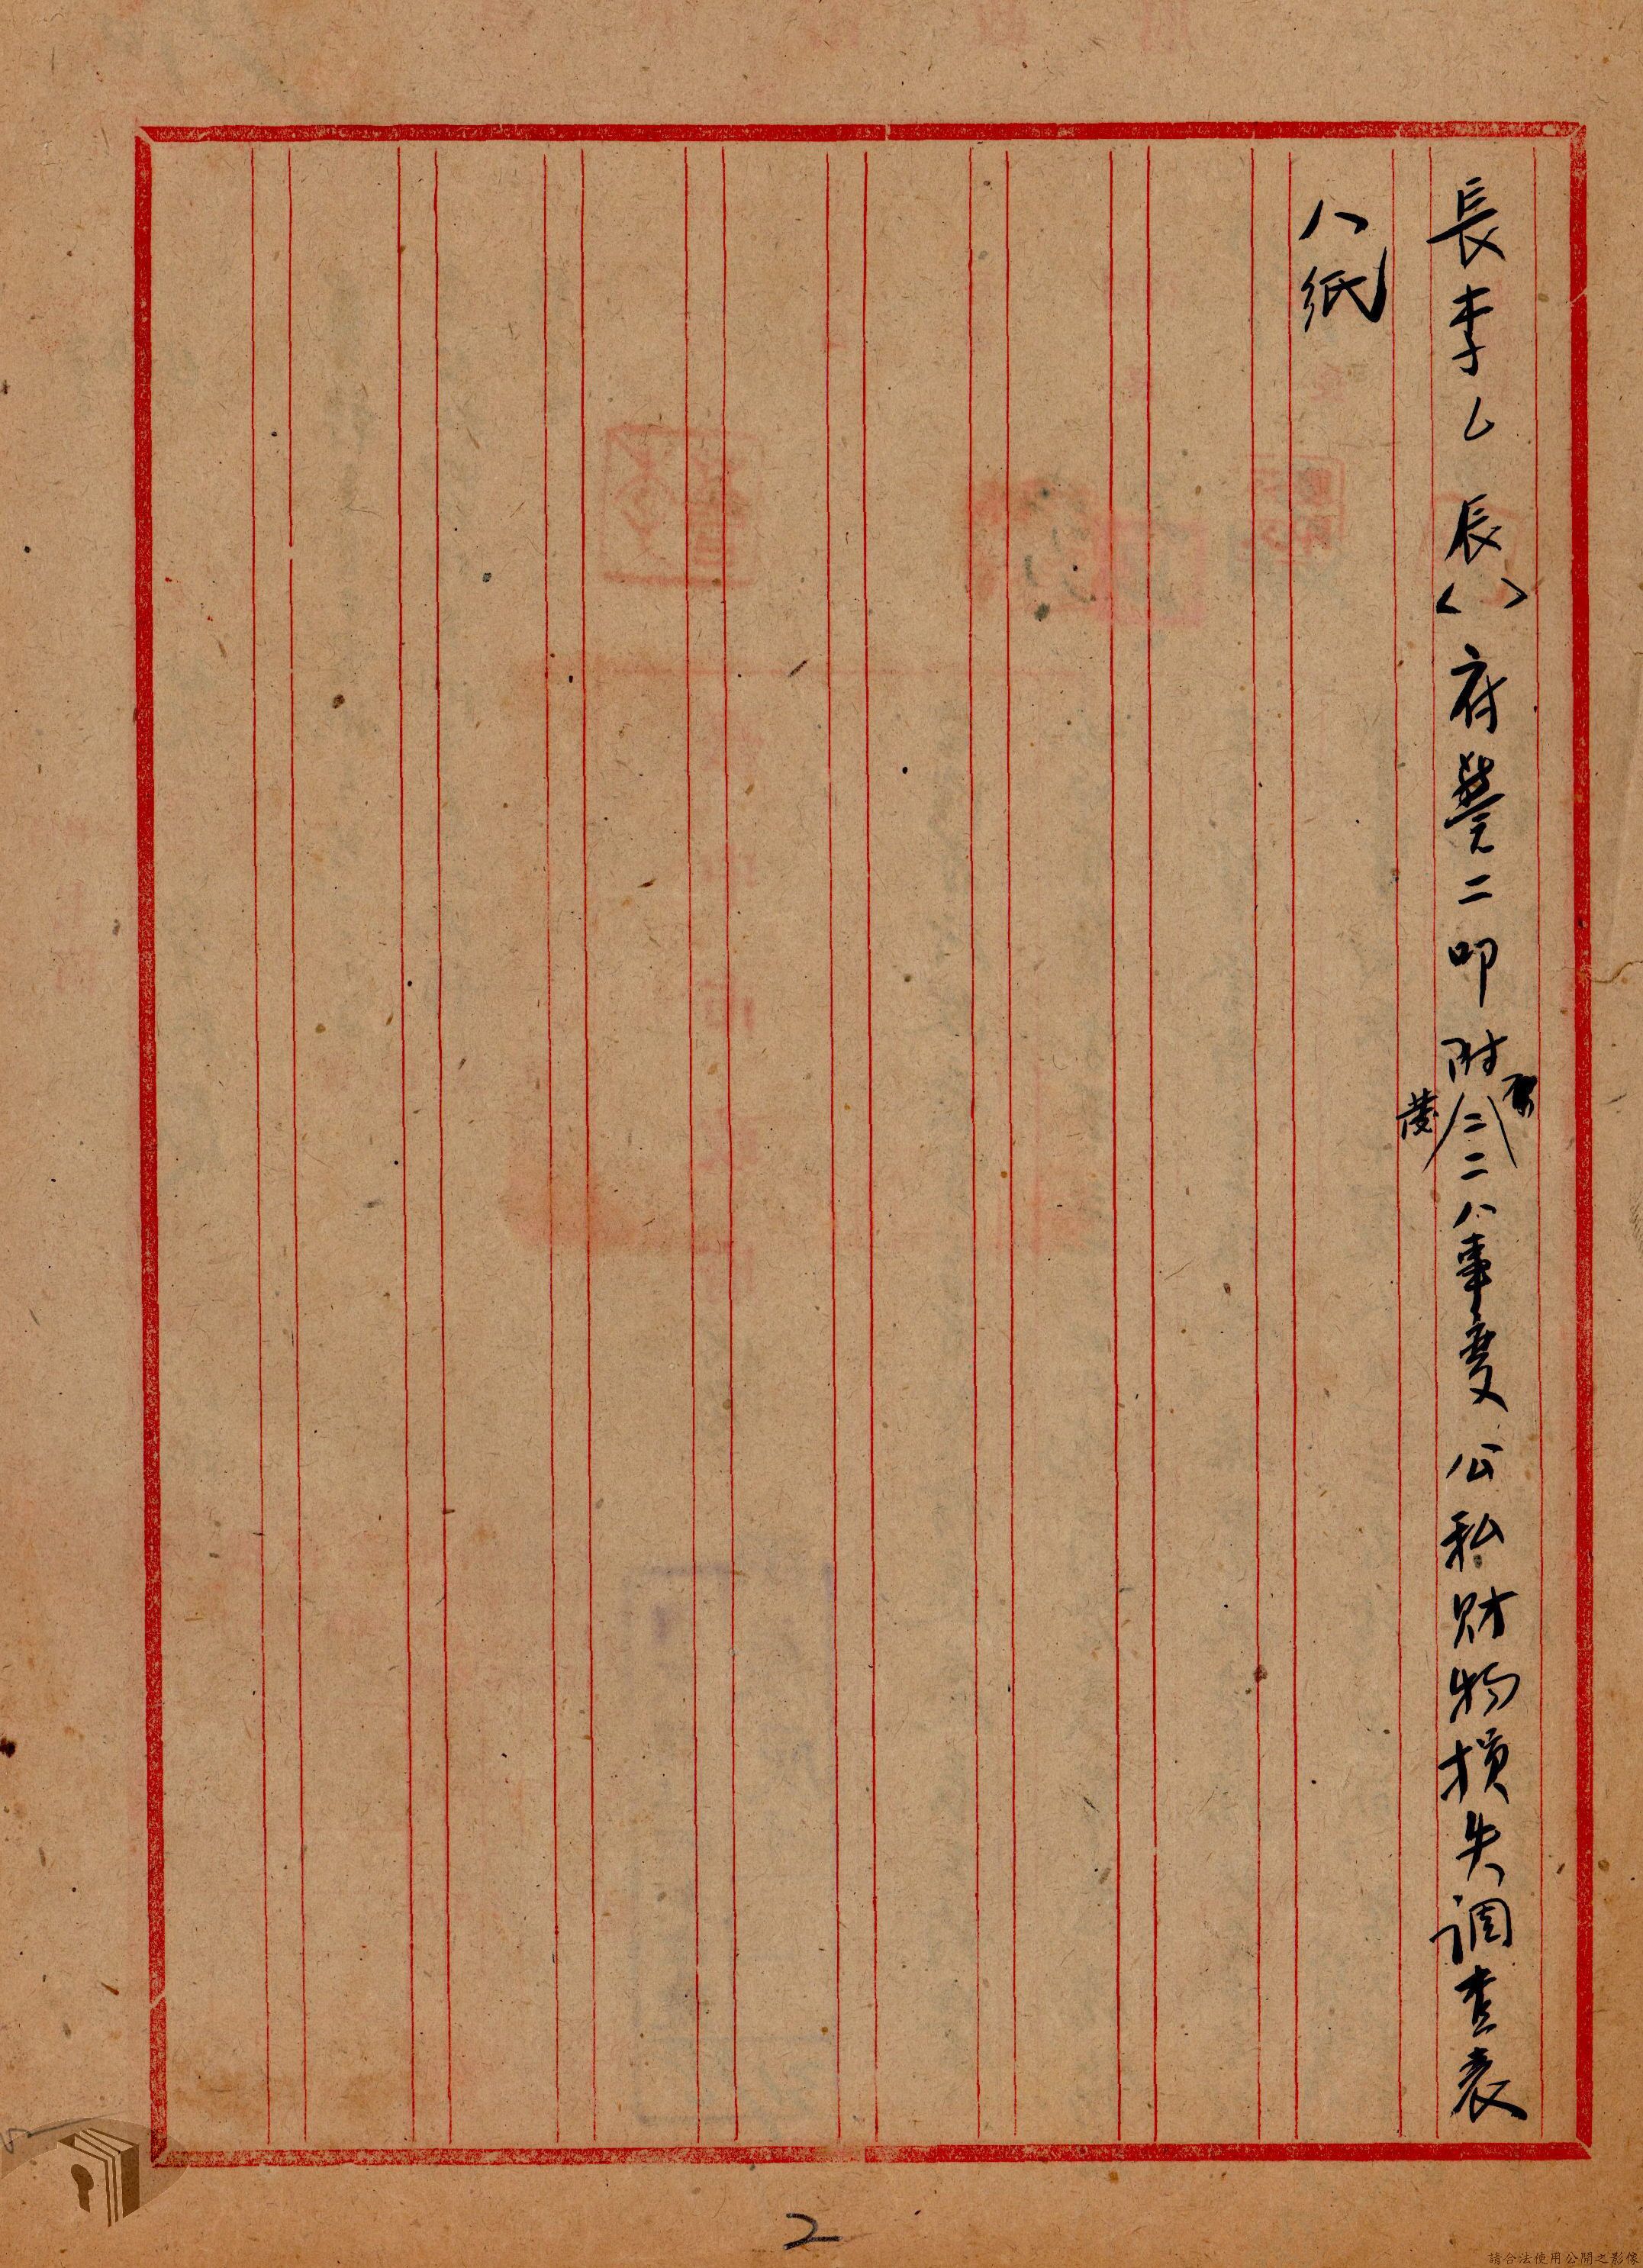 長李 辰〈 〉府警二叩 附二二八事變公私財物損失調查表
八紙
2
請合法使用公開之影像